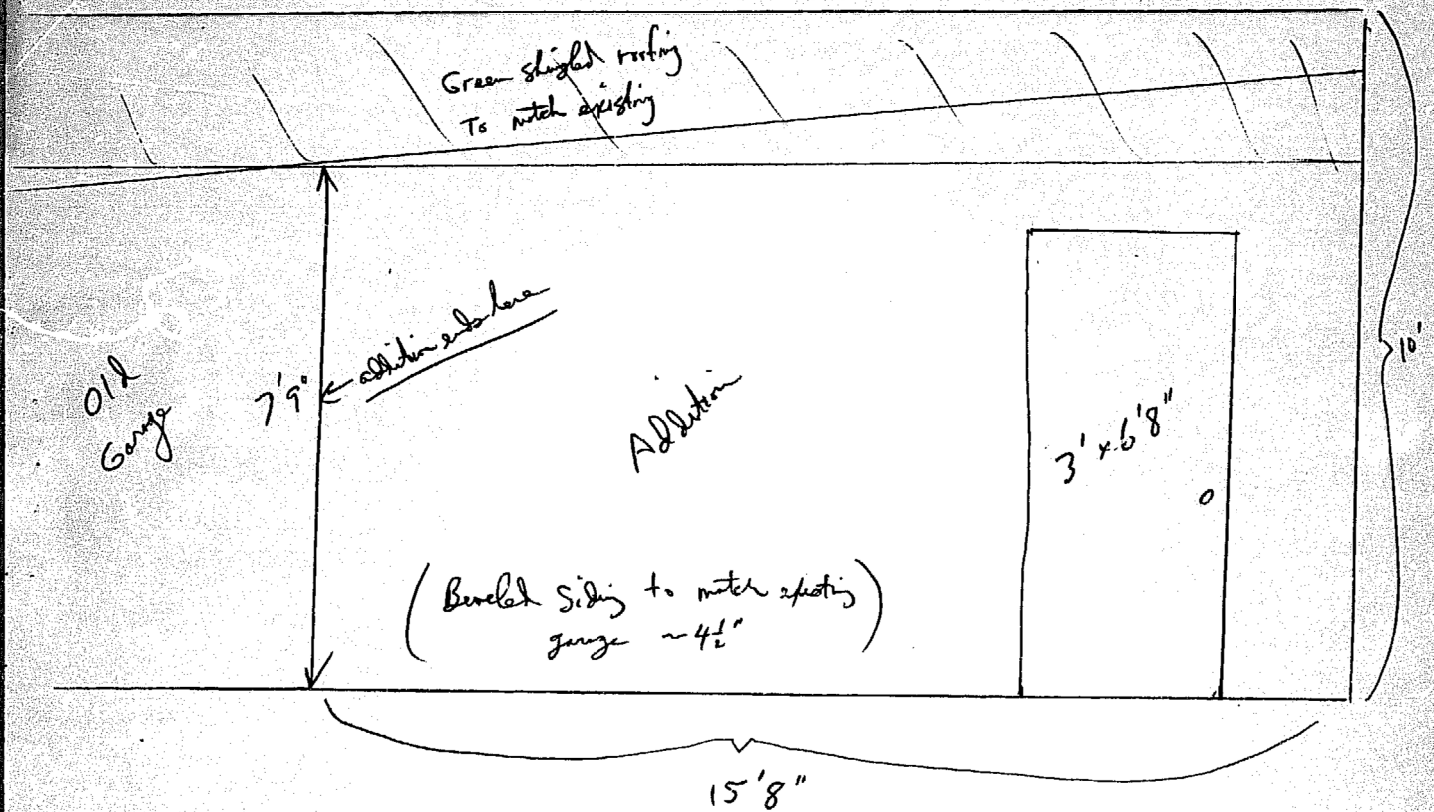 Green shingled roofing
To match existing
10'
Old
Garage
7'9"
← addition ends here
Addition
3' x 6'8"
(Beveled Siding to match existing
garage ~ 4½")
15'8"